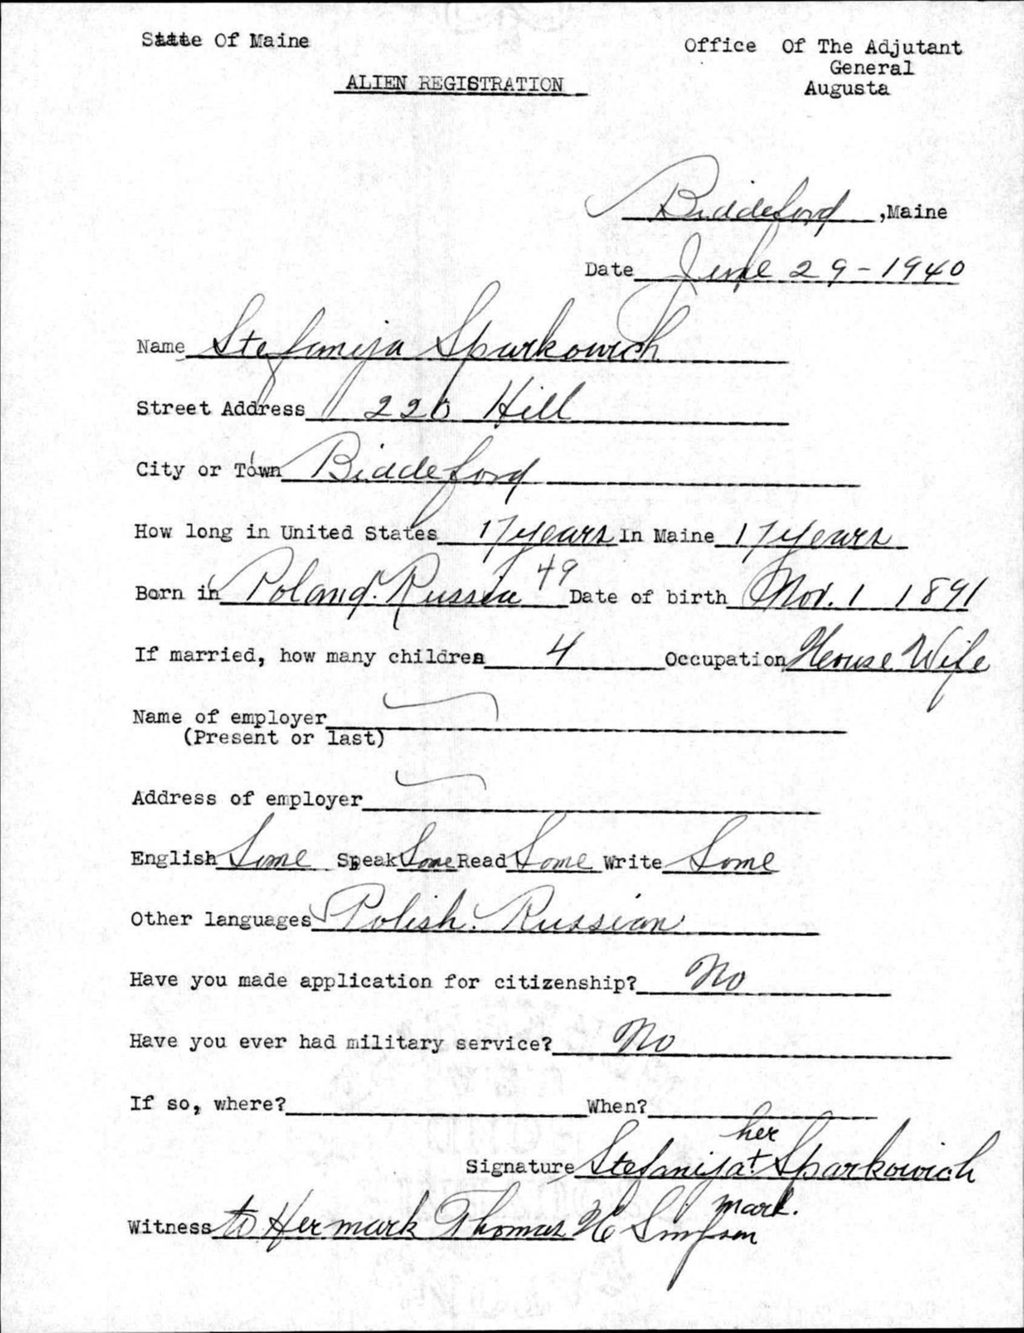 State Of Maine
Office Of The Adjutant
General
Augusta
ALIEN REGISTRATION
Biddeford, Maine
Date June 29-1940
Name Stefanija Sparkowich
Street Address 220 Hill
City or Town Biddeford
How long in United States 17 years In Maine 17 years
49
Born in Poland. Russia Date of birth Nov. 1 1891
If married, how many children 4 Occupation House Wife
Name of employer
(Present or last)
Address of employer
English Some Speak Some Read Some Write Some
Other languages Polish. Russian
Have you made application for citizenship? No
Have you ever had military service? No
If so, where? When?
her
Signature Stefanija + Sparkowich
mark.
Witness to Her mark Thomas H Simpson